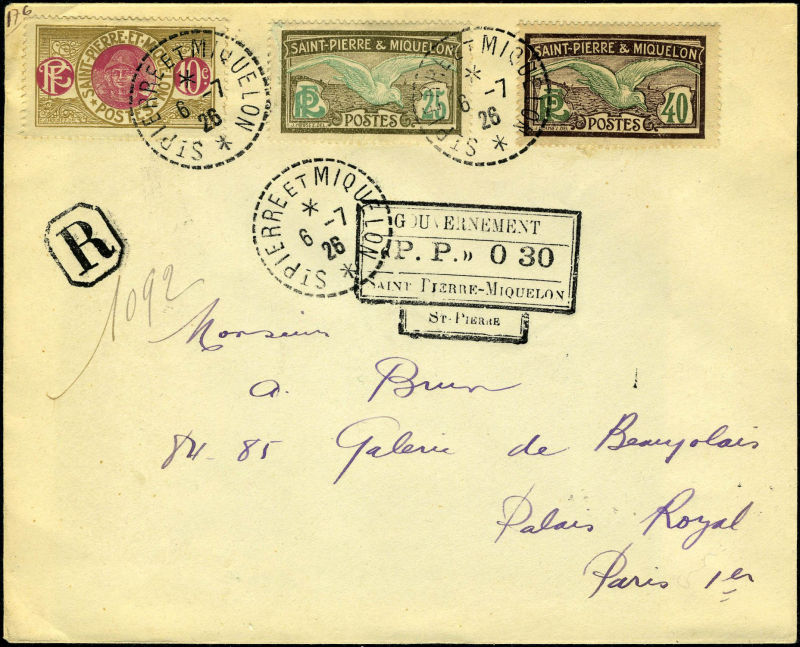 176
SAINT-PIERRE-ET-MIQUELON
RF
10c
POSTES
ST PIERRE ET MIQUELON
6 -7
26
SAINT-PIERRE & MIQUELON
RF
25
POSTES
ST PIERRE ET MIQUELON
6 -7
26
SAINT-PIERRE & MIQUELON
RF
40
POSTES
ST PIERRE ET MIQUELON
6 -7
26
R
GOUVERNEMENT
«P. P.» 0 30
SAINT PIERRE-MIQUELON
ST-PIERRE
1092
Monsieur
A. Brun
84-85 Galerie de Beaujolais
Palais Royal
Paris 1er